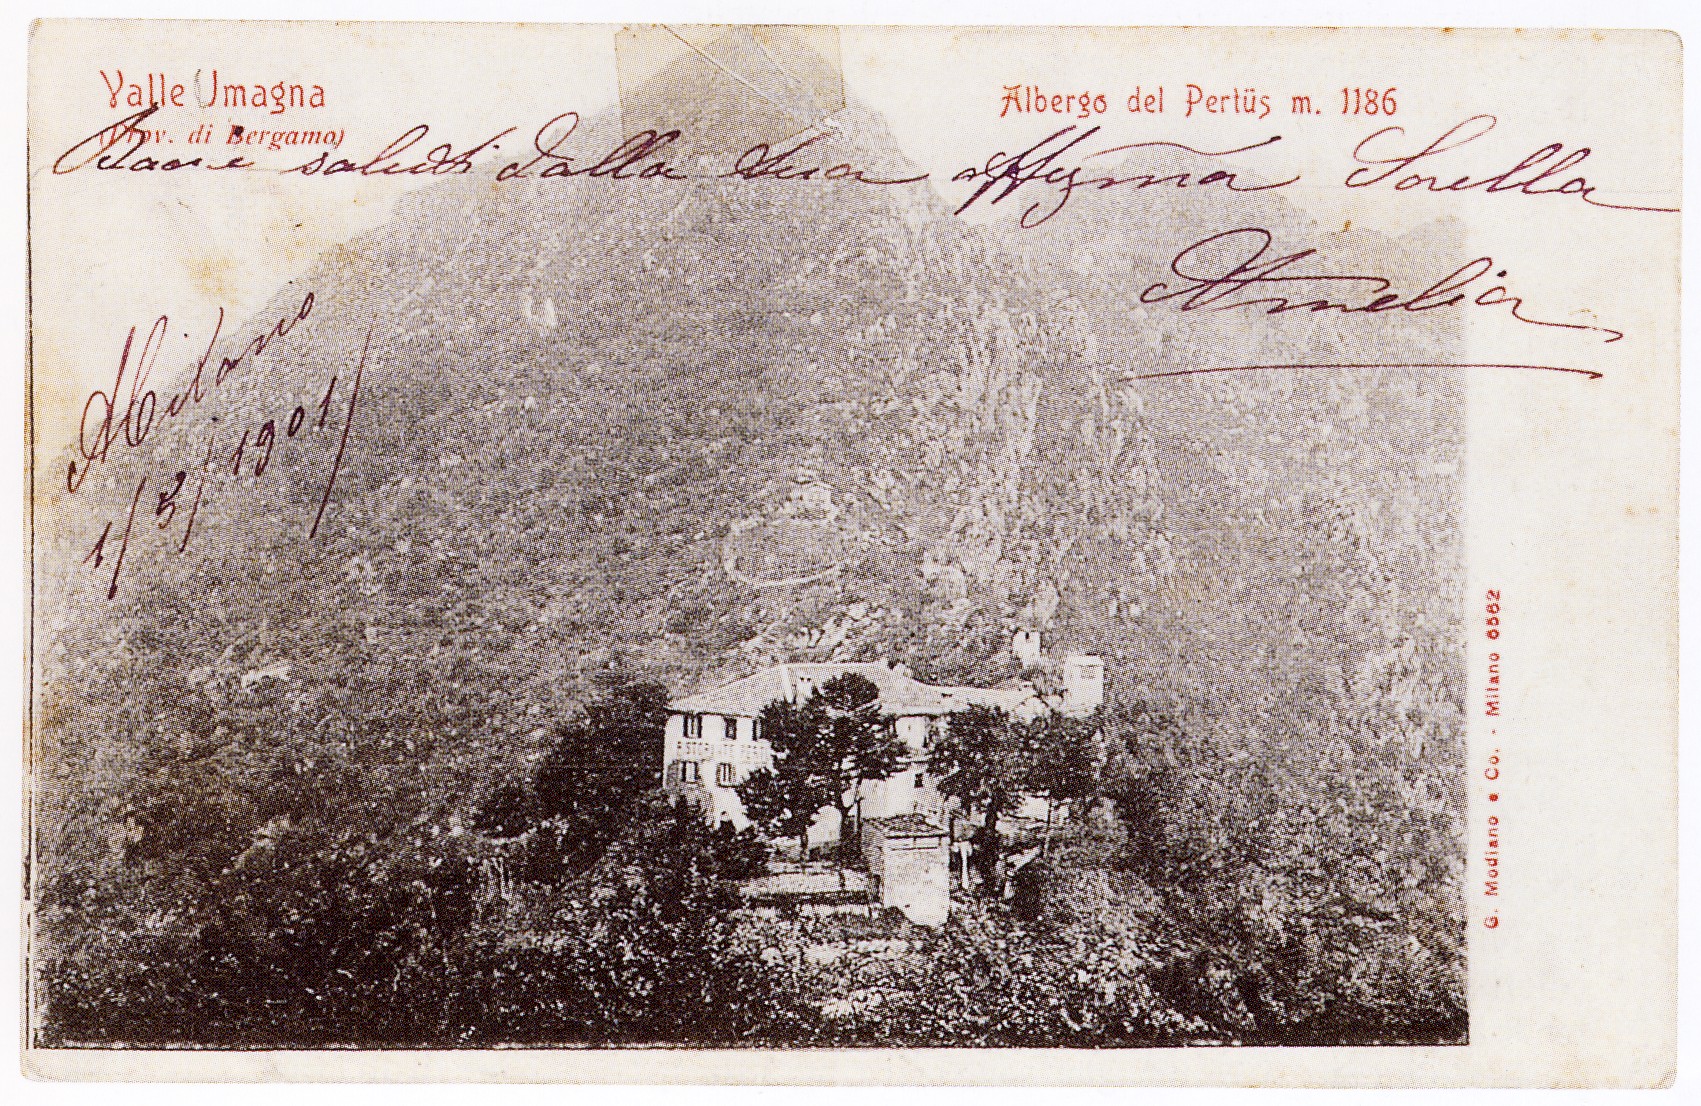 Valle Imagna
(Prov. di Bergamo)
Albergo del Pertüs m. 1186
Baci e saluti dalla tua affezma Sorella
Amelia
Milano
1/3/1901/
G. Modiano e Co. - Milano 6562